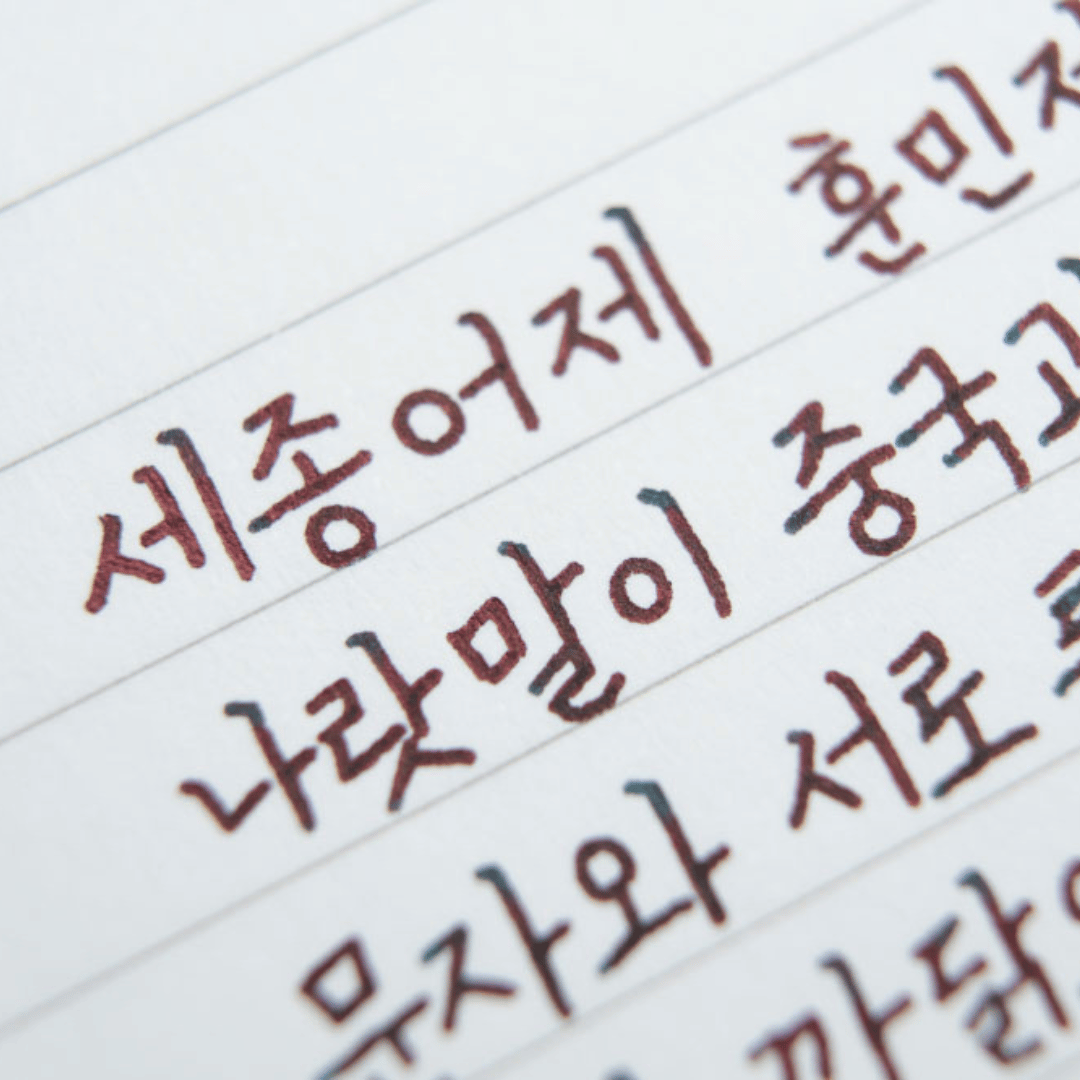 세종어제 훈민
나랏말이 중국
문자와 서로
까닭